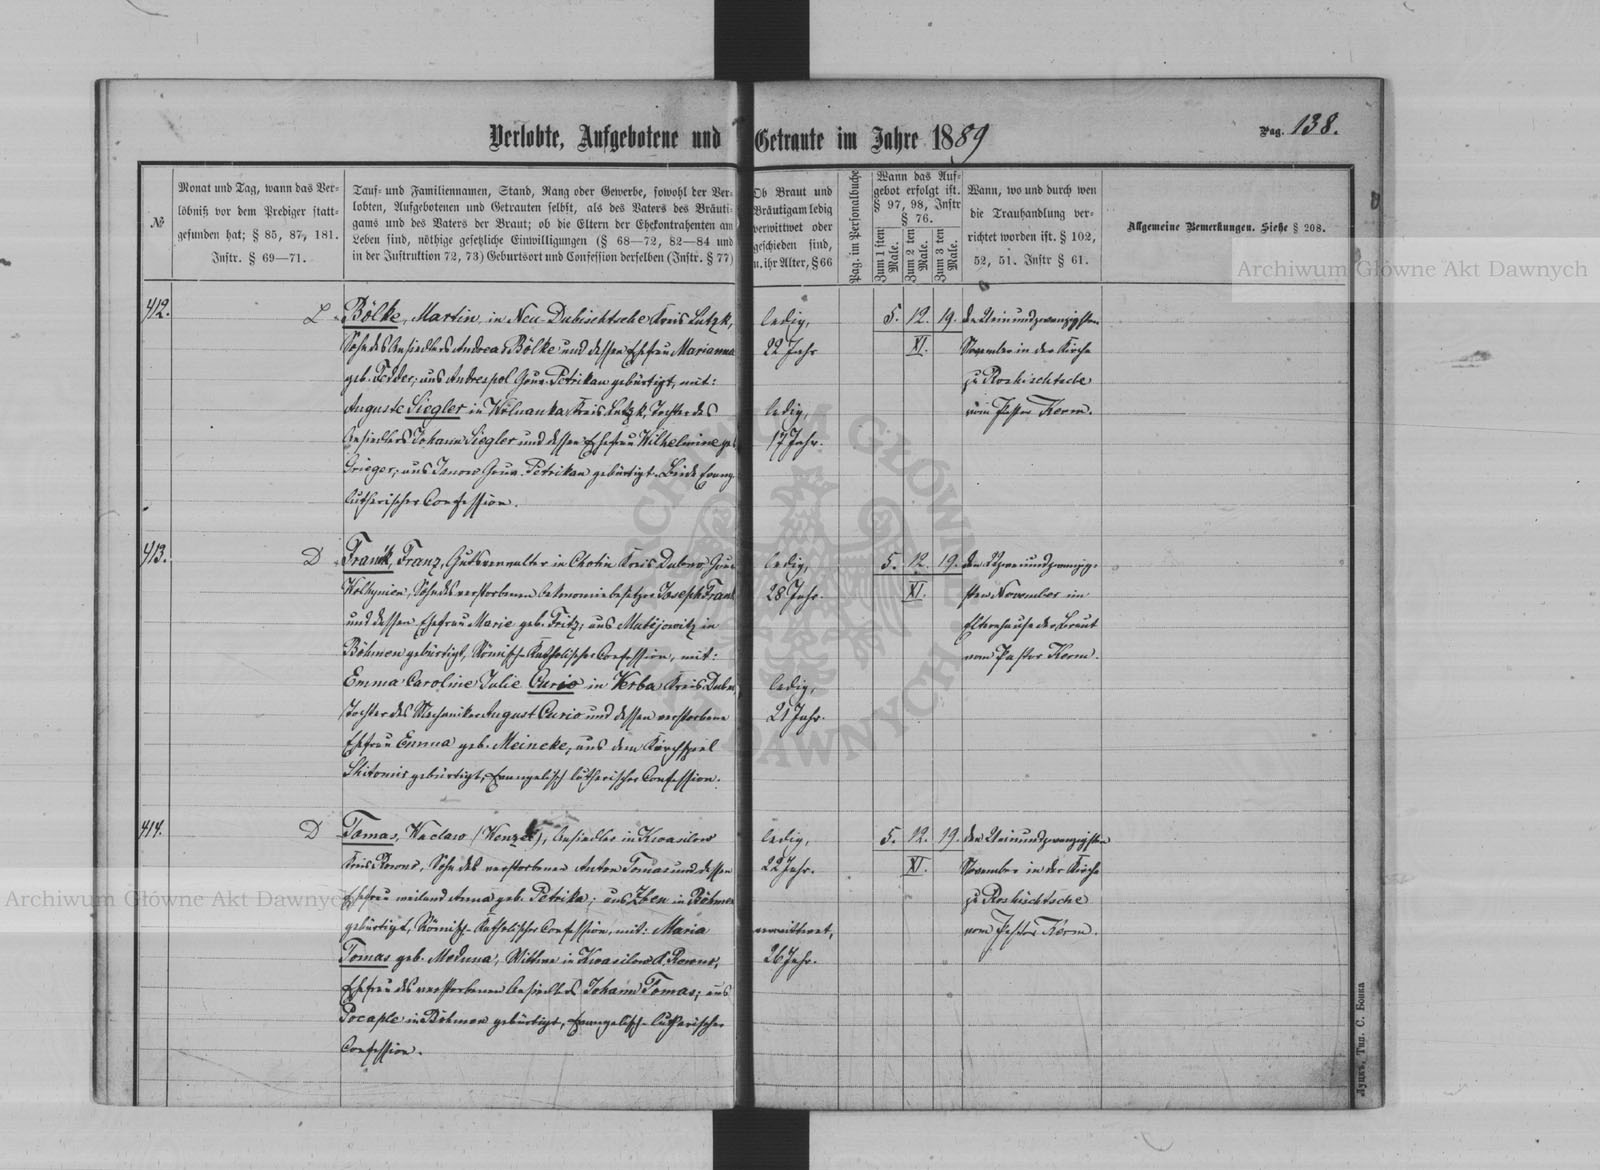 Verlobte, Aufgebotene und Getraute im Jahre 1889
Pag. 138.
№
Monat und Tag, wann das Ver-
löbniß vor dem Prediger statt-
gefunden hat; § 85, 87, 181.
Instr. § 69—71.
Tauf- und Familiennamen, Stand, Rang oder Gewerbe, sowohl der Ver-
lobten, Aufgebotenen und Getrauten selbst, als des Vaters des Bräuti-
gams und des Vaters der Braut; ob die Eltern der Ehekontrahenten am
Leben sind, nöthige gesetzliche Einwilligungen (§ 68—72, 82—84 und
in der Instruktion 72, 73) Geburtsort und Confession derselben (Instr. § 77)
Ob Braut und
Bräutigam ledig
verwittwet oder
geschieden sind,
u. ihr Alter, § 66
Pag. im Personalbuche
Wann das Auf-
gebot erfolgt ist.
§ 97, 98, Instr
§ 76.
Zum 1 sten Male.
Zum 2 ten Male.
Zum 3 ten Male.
Wann, wo und durch wen
die Trauhandlung ver-
richtet worden ist. § 102,
52, 51. Instr § 61.
Allgemeine Bemerkungen. Siehe § 208.
412.
L. Bölke, Martin, in Neu-Dubischtsche Kreis Lutzk,
Sohn des Ansiedlers Andreas Bölke und dessen Ehefrau Marianna
geb. Fedder; aus Andrespol Gouv. Petrikau gebürtigt, mit:
Auguste Siegler in Wólnanka Kreis Lutzk, Tochter des
Ansiedlers Johann Siegler und dessen Ehefrau Wilhelmine geb.
Grieger; aus Janow Gouv. Petrikau gebürtigt. Beide Evang.
lutherischer Confession.
ledig,
22 Jahr
ledig,
17 Jahr.
5. 12. 19.
XI.
den Einundzwanzigsten
November in der Kirche
zu Roshischtsche
vom Pastor Kerm.
413.
D Frank, Franz, Gutsverwalter in Chotin Kreis Dubno, Gouv
Wolhynien, Sohn des verstorbenen Oekonomiebesitzer Joseph Frank
und dessen Ehefrau Marie geb. Fritz; aus Matějowitz in
Böhmen gebürtigt, Römisch-Katholischer Confession, mit:
Emma Caroline Julie Curio in Werba Kreis Dubno
Tochter des Mechaniker August Curio und dessen verstorbene
Ehefrau Emma geb. Meincke, aus dem Kirchspiel
Shitomir gebürtigt, Evangelisch lutherischer Confession.
ledig,
28 Jahr.
ledig,
21 Jahr.
5. 12. 19.
XI.
den Zweiundzwanzig-
sten November im
Elternhause der Braut
vom Pastor Kerm.
414.
D Tomas, Waclaw (Wenzel), Ansiedler in Kwasilow
Kreis Rowno, Sohn des verstorbenen Anton Tomas und dessen
Ehefrau weiland Anna geb. Petrika; aus Zben in Böhmen
gebürtigt, Römisch-Katholischer Confession, mit: Maria
Tomas geb. Meduna, Wittwe in Kwasilow K. Rowno,
Ehefrau des verstorbenen Ansiedlers Johann Tomas; aus
Pocaple in Böhmen gebürtigt, Evangelisch-lutherischer
Confession.
ledig,
22 Jahr.
verwittwet,
26 Jahr.
5. 12. 19.
XI.
den Einundzwanzigsten
November in der Kirche
zu Roshischtsche
vom Pastor Kerm.
Луцкъ, Тип. С. Бонка
Archiwum Główne Akt Dawnych
Archiwum Główne Akt Dawnych
ARCHIWUM GŁÓWNE AKT DAWNYCH